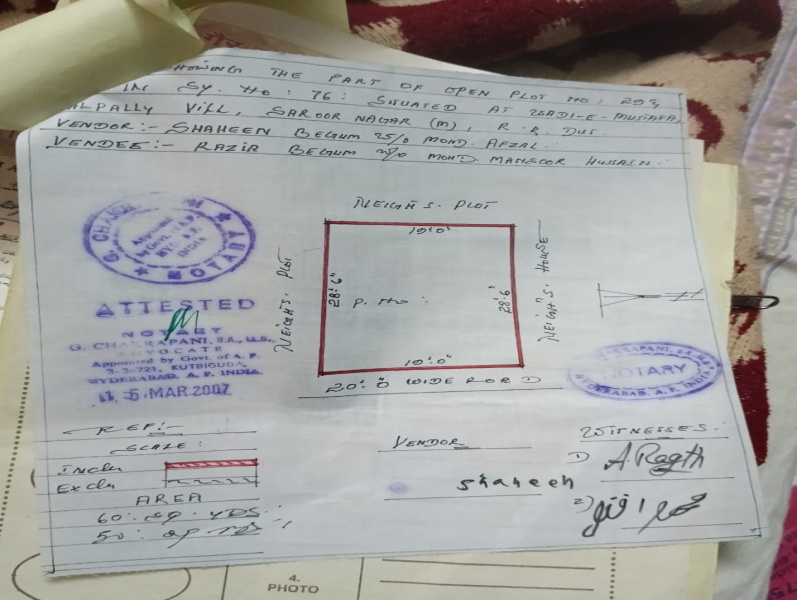 HOWING THE PART OF OPEN PLOT NO: 293,
IN Sy. No: 76: SITUATED AT WADI-E-MUSTAFA,
ALPALLY VILL, SAROOR NAGAR (M), R.R. DIST.
VENDOR:- SHAHEEN BEGUM W/o MOHD. AFZAL.
VENDEE:- RAZIA BEGUM W/o MOHD MANSOOR HUSSAIN.
NEIGH'S. PLOT
19'.0"
NEIGH'S. PLOT
28'.6"
P. No:
28'.6"
NEIGH'S. HOUSE
19'.0"
20'.0 WIDE ROAD
G. CHAKRAPANI
Appointed
by Govt. of A.P.
HYD. A.P.
INDIA
NOTARY
ATTESTED
NOTARY
G. CHAKRAPANI, B.A., LL.B.
ADVOCATE
Appointed by Govt. of A. P.
3-3-721, KUTBIGUDA,
HYDERABAD, A. P. INDIA.
MAR 2007
CHAKRAPANI, B.A. LL.B.
NOTARY
HYDERABAD. A.P. INDIA
REF:-
SCALE:
Inclu
Exclu
AREA
60: Sq. YDS
50: Sq.
VENDOR
shaheen
WITNESSES.
1)
2)
4.
PHOTO